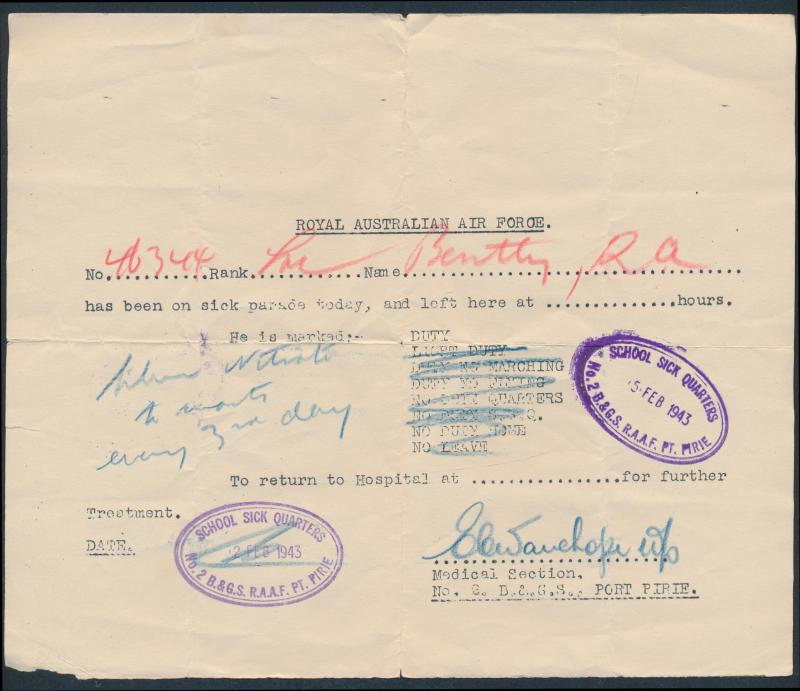 ROYAL AUSTRALIAN AIR FORCE.
No. 46344 Rank............Name Bentley, R A
has been on sick parade today, and left here at ............hours.
He is marked:- DUTY
LIGHT DUTY
DUTY NO MARCHING
DUTY NO FLYING
NO DUTY QUARTERS
NO DUTY S.S.Q.
NO DUTY HOME
NO LEAVE
Silver Nitrate
to warts
every 3rd day
SCHOOL SICK QUARTERS
15 FEB 1943
No. 2 B.&G.S. R.A.A.F. PT. PIRIE
To return to Hospital at ....................for further
Treatment.
DATE.
SCHOOL SICK QUARTERS
2 FEB 1943
No. 2 B.&G.S. R.A.A.F. PT. PIRIE
Medical Section,
No. 2. B.&.G.S., PORT PIRIE.